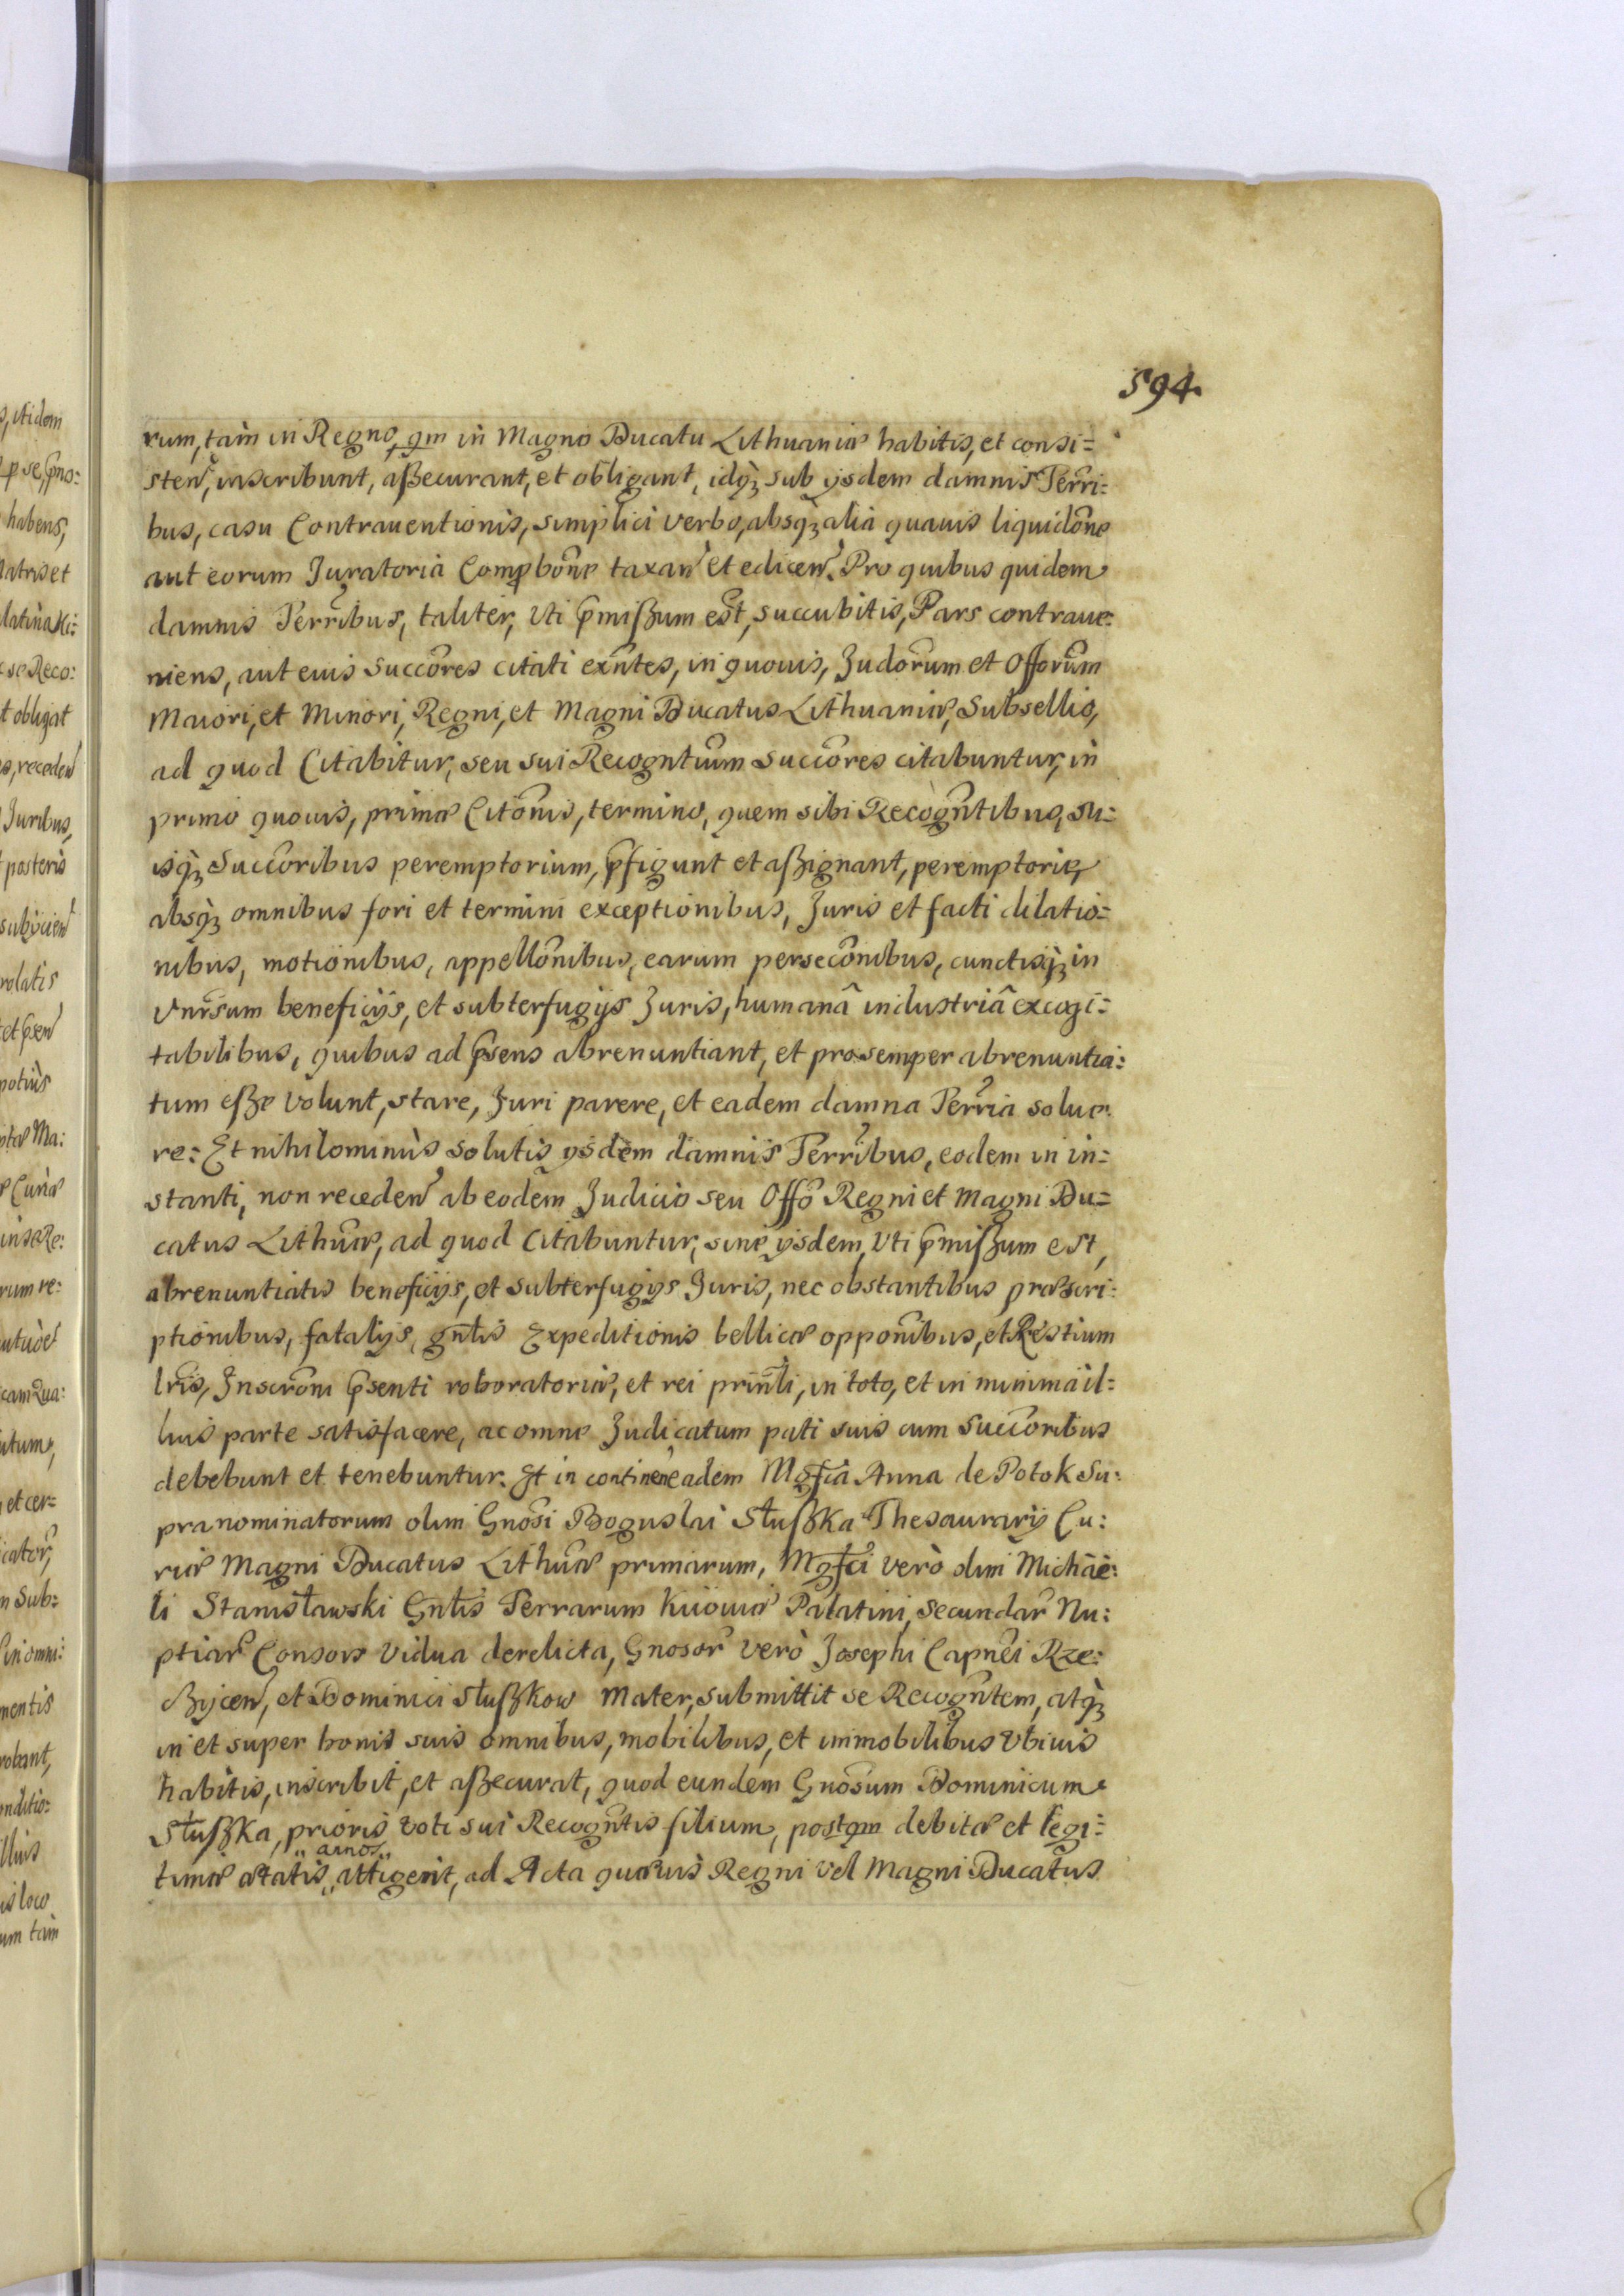 594.
rum, tam in Regno, qm in Magno Ducatu Lithuaniæ habitis, et consi=
sten, inscribunt, aßecurant, et obligant, idqȝ sub ysdem damnis Terri:
bus, casu Contrauentionis, simplici verbo, absqȝ alia quauis liquidõne
aut eorum Juratoria Compbõne taxan et edicen. Pro quibus quidem
damnis Terribus, taliter, Vti pmißum est, succubitis, Pars contraue:
niens, aut eius Succores citati exntes, in quouis, Judorum et Offorum
Maiori, et Minori, Regni, et Magni Ducatus Lithuaniæ, Subsellio,
ad quod Citabitur, seu sui Recogntium Succores citabuntur, in
primo quouis, primæ Citõnis, termino, quem sibi Recogntibus, su=
isqȝ Succoribus peremptorium, pfigunt et aßignant, peremptorie,
absqȝ omnibus fori et termini exceptionibus, Juris et facti dilatio=
nibus, motionibus, appellõnibus, earum persecõnibus, cunctisqȝ in
Vnirsum beneficijs, et subterfugijs Juris, humanâ industriâ excogi=
tabilibus, quibus ad psens abrenuntiant, et pro semper abrenuntia:
tum eße volunt, stare, Juri parere, et eadem damna Terria solue:
re: Et nihilominùs solutis ysdem damnis Terribus, eodem in in=
stanti, non receden ab eodem Judicio seu Offo Regni et Magni Du=
catus Lithuæ, ad quod Citabuntur, sine ysdem, Vti pmißum est,
abrenuntiatis beneficijs, et subterfugijs Juris, nec obstantibus præscri:
ptionibus, fatalijs, gnlis Expeditionis bellicæ opponibus, et Restium
lris, Inscroni psenti roboratoriæ, et rei prinli, in toto, et in minima il=
lius parte satisfacere, ac omne Judicatum pati suis cum Succoribus
debebunt et tenebuntur. Et in continen eadem Mgfica Anna de Potok Su:
pranominatorum olim Gnosi Boguslai Słußka Thesaurarij Cu:
riæ Magni Ducatus Lithuæ primarum, Mgfci verò olim Michaë:
li Stanisławski Gnlis Terrarum Kiiouiæ Palatini, secundar Nu:
ptiar Consors vidua derelicta, Gnosor verò Josephi Capnei Rze:
czycen, et Dominici Słußkow Mater, submittit se Recogntem, atqȝ
in et super bonis suis omnibus, mobilibus, et immobilibus vbiuis
habitis, inscribit, et aßecurat, quod eundem Gnosum Dominicum
Słußka, prioris voti sui Recogntis filium, postqm debitæ et legi=
timæ ætatis „annos„ attigerit, ad Acta quæuis Regni vel Magni Ducatus